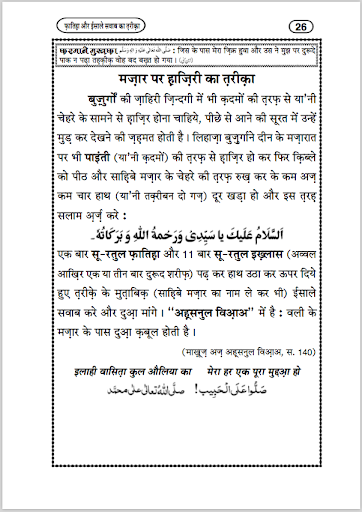 फ़ातिह़ा और ईसाले सवाब का त़रीक़ा
26
फ़रमाने मुस्त़फ़ा صَلَّى اللهُ تَعَالٰى عَلَيْهِ وَاٰلِهٖ وَسَلَّم : जिस के पास मेरा ज़िक्र हुवा और उस ने मुझ पर दुरूदे
पाक न पढ़ा तह़क़ीक़ वोह बद बख़्त हो गया ।
मज़ार पर ह़ाज़िरी का त़रीक़ा
बुज़ुर्गों की ज़ाहिरी ज़िन्दगी में भी क़दमों की त़रफ़ से या'नी
चेहरे के सामने से ह़ाज़िर होना चाहिये, पीछे से आने की सूरत में उन्हें
मुड़ कर देखने की ज़ह़मत होती है । लिहाज़ा बुज़ुर्गाने दीन के मज़ारात
पर भी पाइंती (या'नी क़दमों) की त़रफ़ से ह़ाज़िर हो कर फिर क़िब्ले
को पीठ और साह़िबे मज़ार के चेहरे की त़रफ़ रुख़ कर के कम अज़
कम चार हाथ (या'नी तक़्रीबन दो गज़) दूर खड़ा हो और इस त़रह़
सलाम अ़र्ज़ करे :
اَلسَّلَامُ عَلَيْكَ يَا سَيِّدِىْ وَرَحْمَةُ اللهِ وَبَرَكَاتُهٗ۔
एक बार सू-रतुल फ़ातिह़ा और 11 बार सू-रतुल इख़्लास (अव्वल
आख़िर एक या तीन बार दुरूद शरीफ़) पढ़ कर हाथ उठा कर ऊपर दिये
हुए त़रीक़े के मुत़ाबिक़ (साह़िबे मज़ार का नाम ले कर भी) ईसाले
सवाब करे और दुआ़ मांगे । “अह़्सनुल विआ़अ” में है : वली के
मज़ार के पास दुआ़ क़बूल होती है ।
(माख़ूज़ अज़ अह़सनुल विआ़अ, स. 140)
इलाही वासित़ा कुल औलिया का मेरा हर एक पूरा मुद्दआ़ हो
صَلُّوا عَلَى الْحَبِيْب! صَلَّى اللهُ تَعَالٰى عَلٰى مُحَمَّد